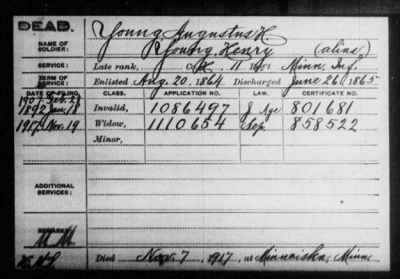 DEAD.
NAME OF SOLDIER:
Young, Augustus H.
Young, Henry (alias)
SERVICE:
Late rank, Co. 11 Minn. Inf.
TERM OF SERVICE:
Enlisted Aug. 20, 1864. Discharged June 26, 1865
DATE OF FILING. CLASS. APPLICATION NO. LAW. CERTIFICATE NO.
1907 Feb. 23
1892 Invalid, 1086497 Age 801681
1917 Nov. 19 Widow, 1110654 Sep. 858522
Minor,
ADDITIONAL SERVICES:
REMARKS:
Died Nov. 7, 1917, at Minneiska, Minn.